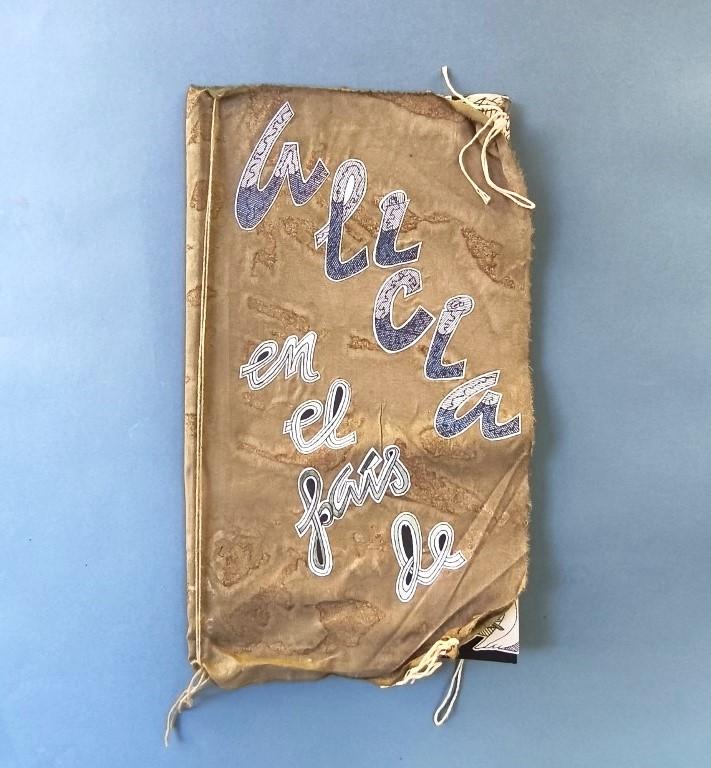 Alicia
en
el
país
de